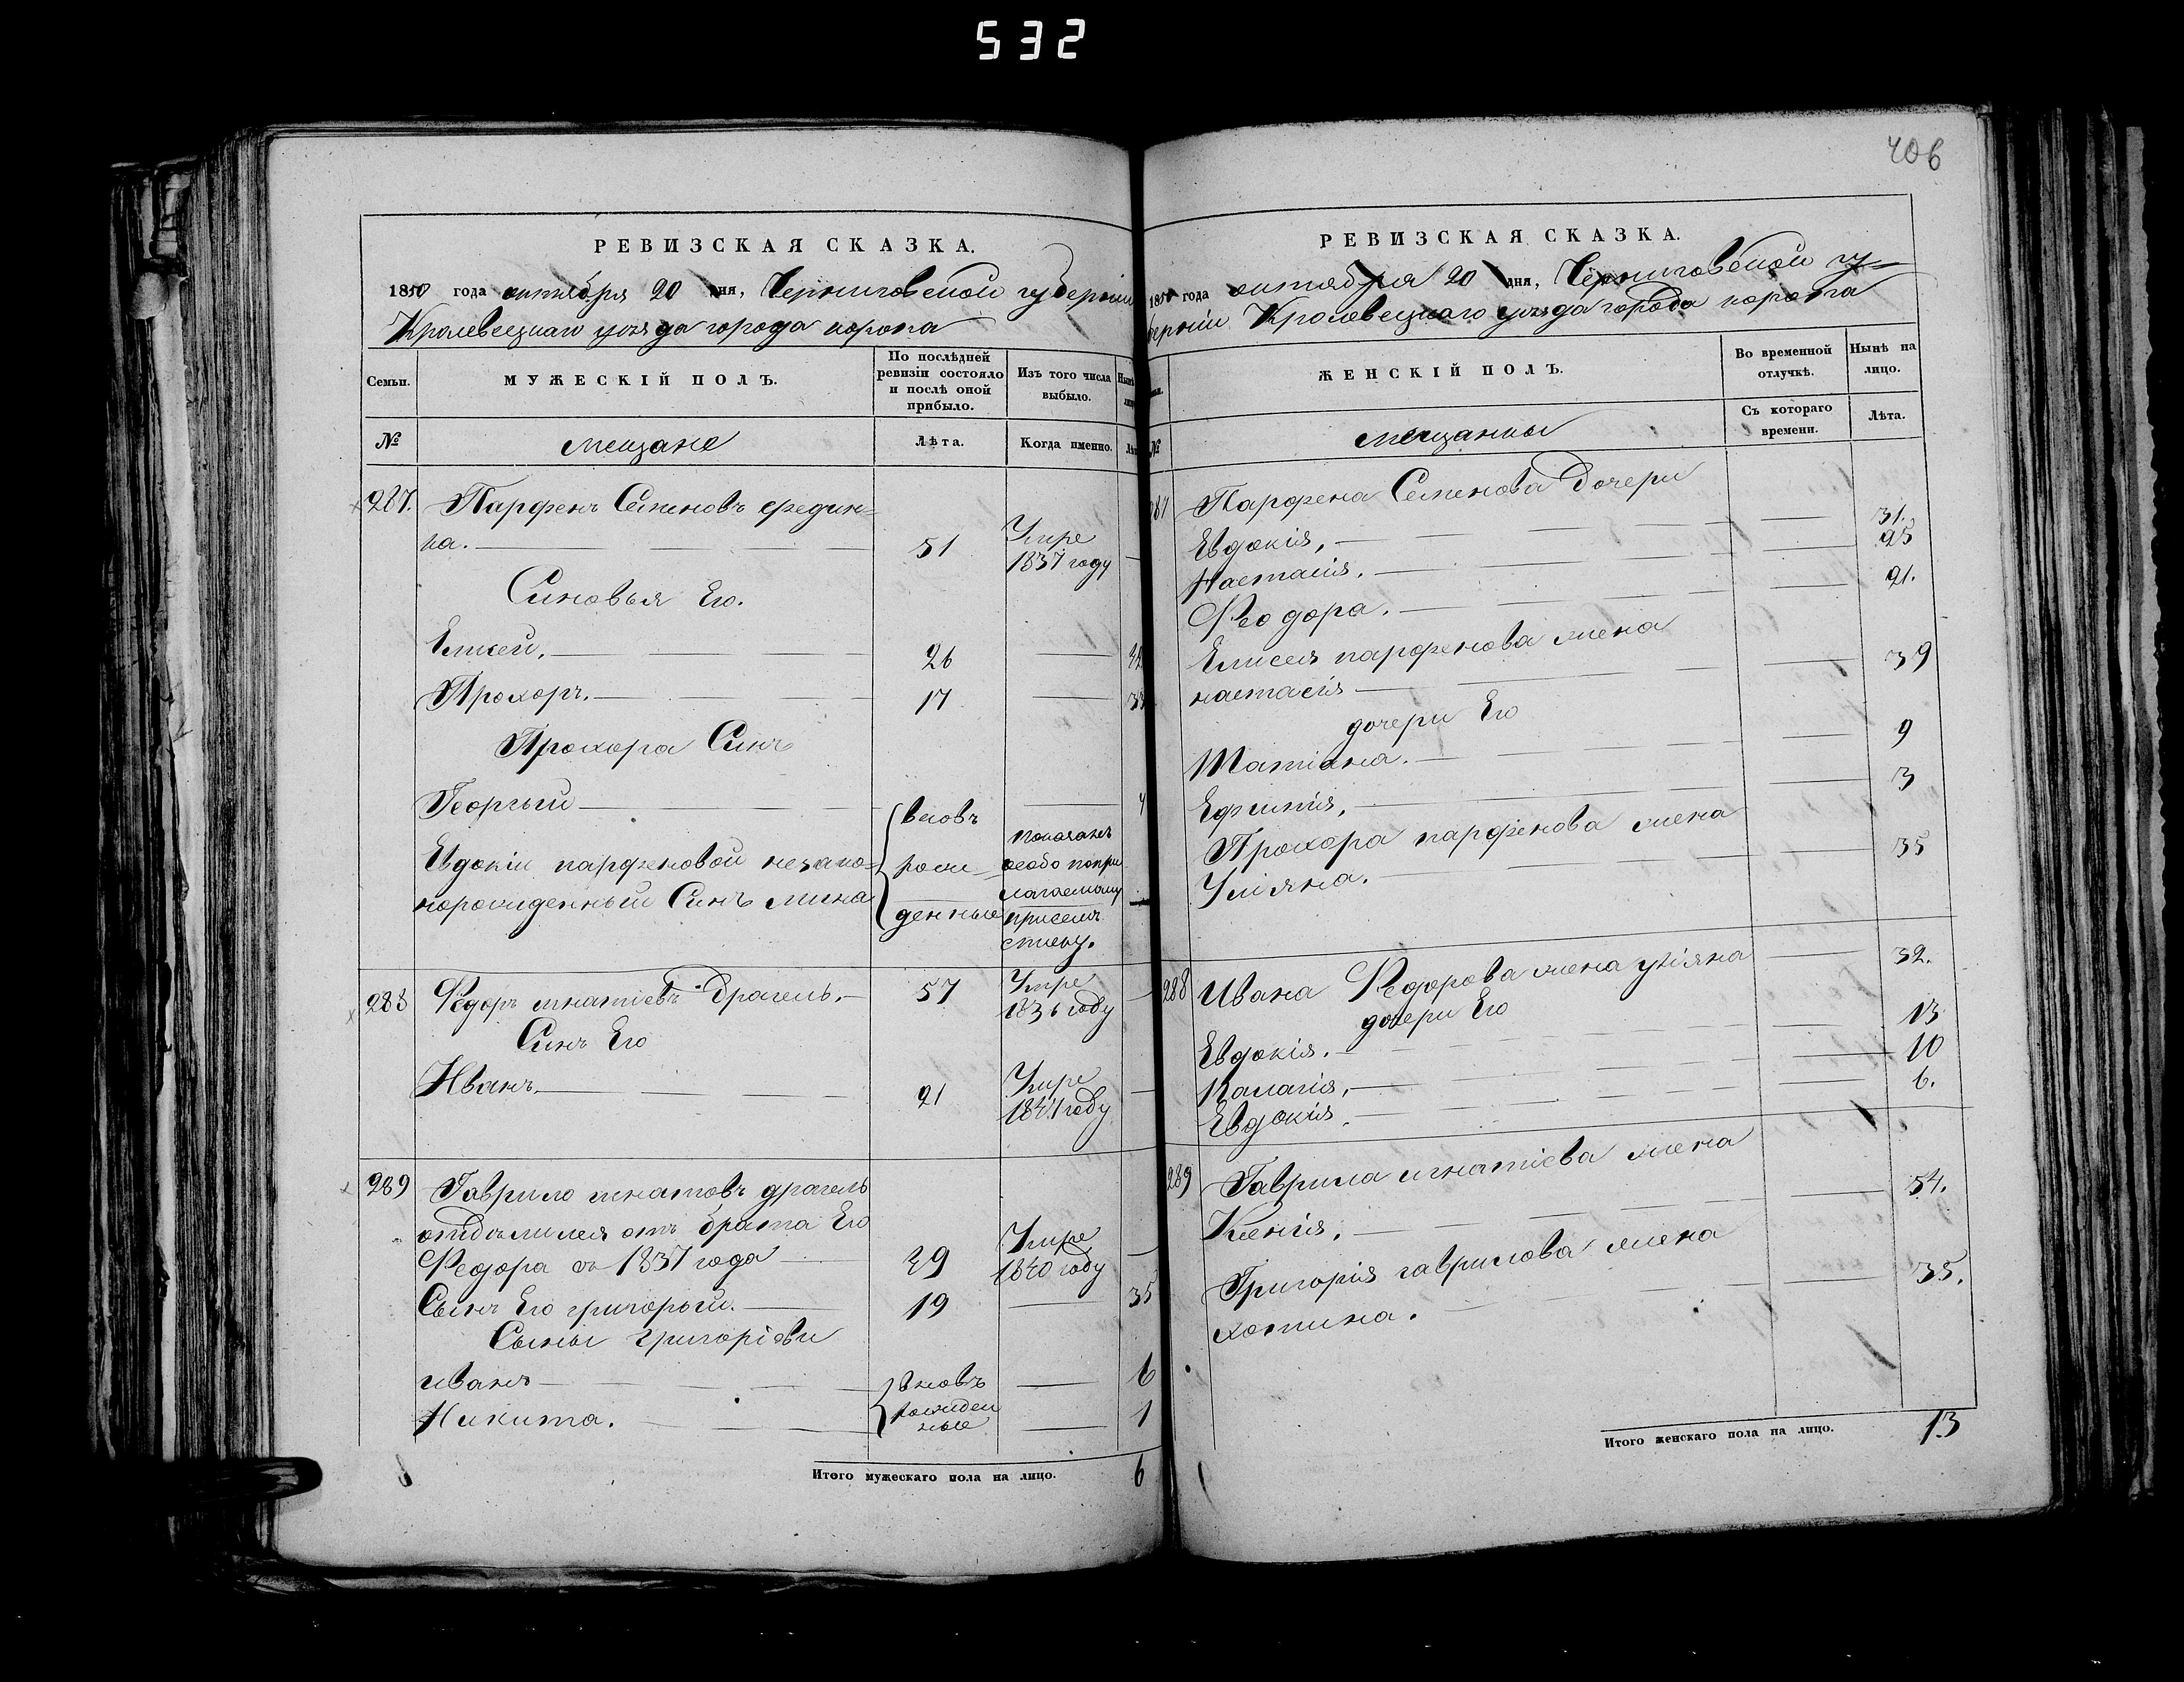 532
406
РЕВИЗСКАЯ СКАЗКА.
1850 года октября 20 дня, Черниговской губернии
Кролевецкаго уезда города коропа
Семьи.
МУЖЕСКІЙ ПОЛЪ.
По послѣдней ревизіи состояло и послѣ оной прибыло.
Изъ того числа выбыло.
Нынѣ
№
мещане
Лѣта.
Когда именно.
287. Парфенъ Семеновъ
ка. 51 Умре 1837 году
Синовья Его.
Елисей. 26 42
Прохоръ. 17 33
Прохора Синъ
Георгий вновь 4
Евдокіи парфеновой незако=
норожденный Синъ мина
рож=денные
показанъ особо по при лагаемому
списку.
288 Федоръ игнатіевъ Драгель. 57 Умре 1836 году
Синъ Его
Иванъ. 21 Умре 1841 году
289 Гаврило игнатовъ драгель
отделился отъ брата Его
Федора съ 1837 года 49 Умре 1840 году
Сынъ Его григорый. 19 35
Сыны григоріеви
иванъ вновь 6
Никита. рожден ные 1
Итого мужескаго пола на лицо. 6
РЕВИЗСКАЯ СКАЗКА.
1850 года октября 20 дня, Черниговской гу=
берніи Кролевецкаго уезда города коропа
ЖЕНСКІЙ ПОЛЪ.
Во временной отлучкѣ.
Нынѣ на лицо.
№
мещанки
Съ котораго времени.
Лѣта.
287 Парфена Семенова Дочери
Евдокія, 31.
Настасія. 25
Феодора. 21.
Елисея парфенова жена
настасія 39
дочери Его
Татіяна. 9
Ефимія. 3
Прохора парфенова жена
Уліяна. 35
288 Ивана Федорова жена уліяна 32.
дочери Его
Евдокія. 13
Палагія, 10
Евдокія. 6.
289 Гаврила игнатіева жена
Ксенія. 54.
Григорія гаврилова жена
хотина. 35.
Итого женскаго пола на лицо. 13